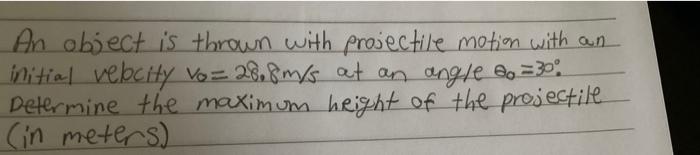 An object is thrown with projectile motion with an
initial velocity v₀ = 28.8m/s at an angle θ₀ = 30°.
Determine the maximum height of the projectile
(in meters)